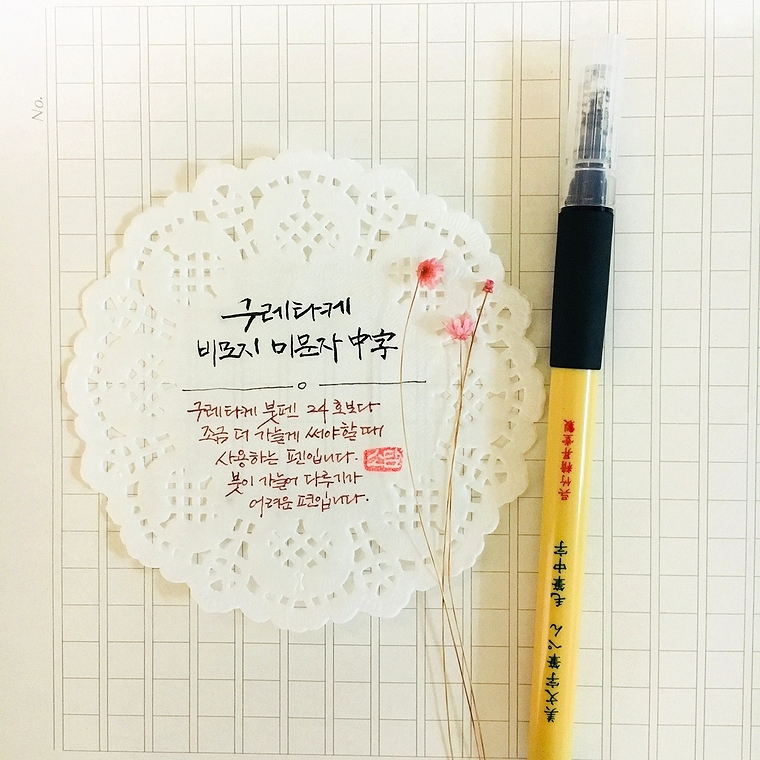 No.
구레타케
비모지 미문자 中字
구레타케 붓펜 24호보다
조금 더 가늘게 써야할 때
사용하는 펜입니다.
붓이 가늘어 다루기가
어려운 펜입니다.
呉竹精昇堂製
美文字筆ぺん 毛筆中字